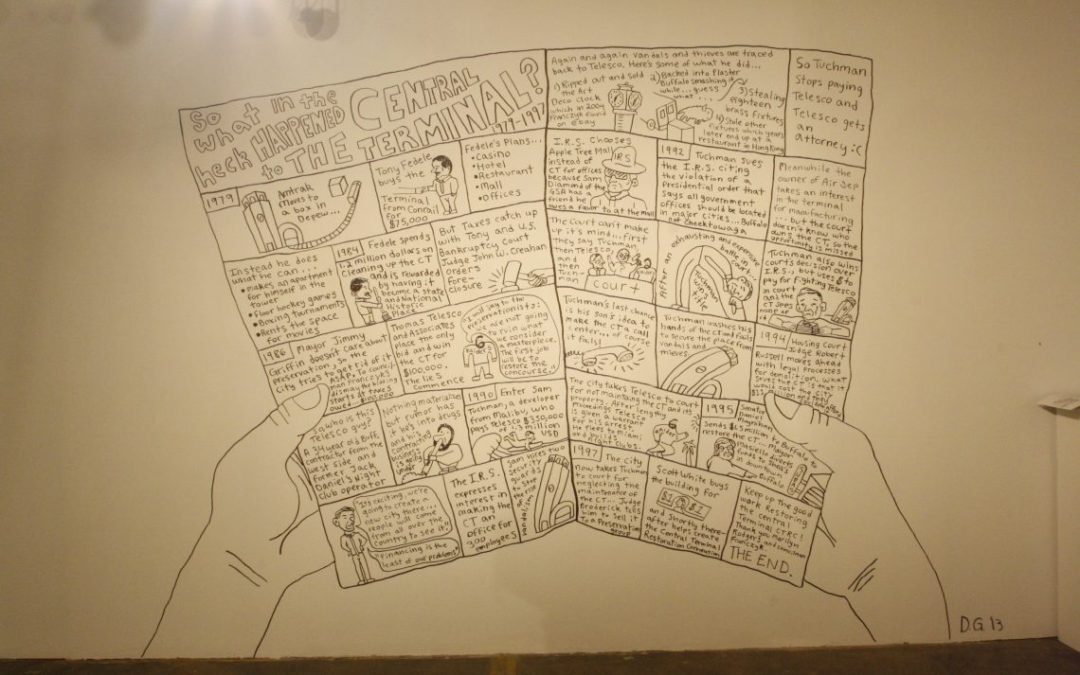 So
what in the
heck HAPPENED
to THE
CENTRAL
TERMINAL?
1979-1997
1979
Amtrak
moves to
a box in
Depew...
Tony Fedele
buys the
Terminal
from Conrail
for
$75,000
Fedele's Plans...
• Casino
• Hotel
• Restaurant
• Mall
• Offices
Instead he does
what he can...
• makes an apartment
for himself in the
tower
• Floor hockey games
• Boxing tournaments
• Rents the space
for movies
1984
Fedele spends
million dollars on
cleaning up the CT
and is rewarded
by having it
become a state
and National
Historic
Place
But Taxes catch up
with Tony and U.S.
Bankruptcy Court
Judge John W. Creahan
orders
Fore-
closure
1986
Mayor Jimmy
Griffin doesn't care about
preservation, so the
city tries to get rid of it
A.S.A.P.
Thomas Telesco
and Associates
place the only
bid and win
the CT for
$100,000.
The lies
commence
I will say to the
preservationists:
we are not going
to ruin what
we consider
a masterpiece.
The first job
will be to
restore the
concourse."
So who is this
Telesco guy?
A 34 year old Buff.
contractor from the
west side and
former Jack
Daniel's Night
Club operator
Nothing materializes
but rumor has
it he's into drugs
and his
contracting
business
is going
under
1990
Enter Sam
Tuchman, a developer
from Malibu, who
pays Telesco $350,000
USD
"It's exciting, we're
going to create a
new city there...
People will come
from all over the
country to see it"
"Financing is the
least of our problems"
The I.R.S.
expresses
interest in
making the
CT an
office for
300
employees
Sam hires two
security
guards
to stop
the
vandalism
Again and again vandals and thieves are traced
back to Telesco. Here's some of what he did...
1) Ripped out and sold
the Art
Deco Clock
which in 2004
Franczyk found
on ebay
2) Backed into Plaster
Buffalo smashing it
while... guess
what...
3) Stealing
eighteen
brass fixtures
4) Stole other
fixtures which years
later end up at a
restaurant in Hong Kong
So Tuchman
stops paying
Telesco and
Telesco gets
an
attorney :(
I.R.S. Chooses
Apple Tree Mall
instead of
CT for offices
because Sam
Diamond of the
GSA has a
friend he
owes a favor to at the mall
IRS
1992
Tuchman sues
the I.R.S. citing
the violation of a
Presidential order that
says all government
offices should be located
in major cities... Buffalo
not Cheektowaga
Meanwhile the
owner of Air Sep
takes an interest
in the terminal
for manufacturing
... but the court
doesn't know who
owns the CT, so the
opportunity is missed
The Court can't make
up it's mind... first
They say Tuchman,
Then Telesco,
and
then
Tuch-
man
court
After an exhausting and expensive
battle in court
Tuchman
wins
title
Tuchman also wins
court's decision over
I.R.S., but uses $ to
pay for fighting Telesco
in court
and the
CT sees
none of
it
Tuchman's last chance
is his son's idea to
make the CT a call
center... of course
it fails!
Tuchman washes his
hands of the CT and fails
to secure the place from
vandals and
thieves
1994
Housing Court
Judge Robert
Russell moves ahead
with legal processes
for demolition. What
saves the CT is that it
would cost the city
The city takes Telesco to court
for not maintaining the CT and its
property. After lengthy
proceedings Telesco
is given a warrant
for his arrest.
He flees to Miami
and builds
night clubs.
1995
Senator
Daniel
Moynihan
sends $1.5 million to Buffalo to
restore the CT... Mayor
Masiello diverts
funds to areas
in downtown
Buffalo
1997
The city
now takes Tuchman
to court for
neglecting the
maintenance of
the CT... Judge
Broderick tells
him to sell it
to a Preservation
group
Scott White buys
the building for
$1
and shortly there-
after helps create
the Central Terminal
Restoration Corporation
Keep up the good
work Restoring
the Central
Terminal CTRC!
Thank you Marilyn
Rodgers and councilman
Franczyk
THE END.
D.G. 13